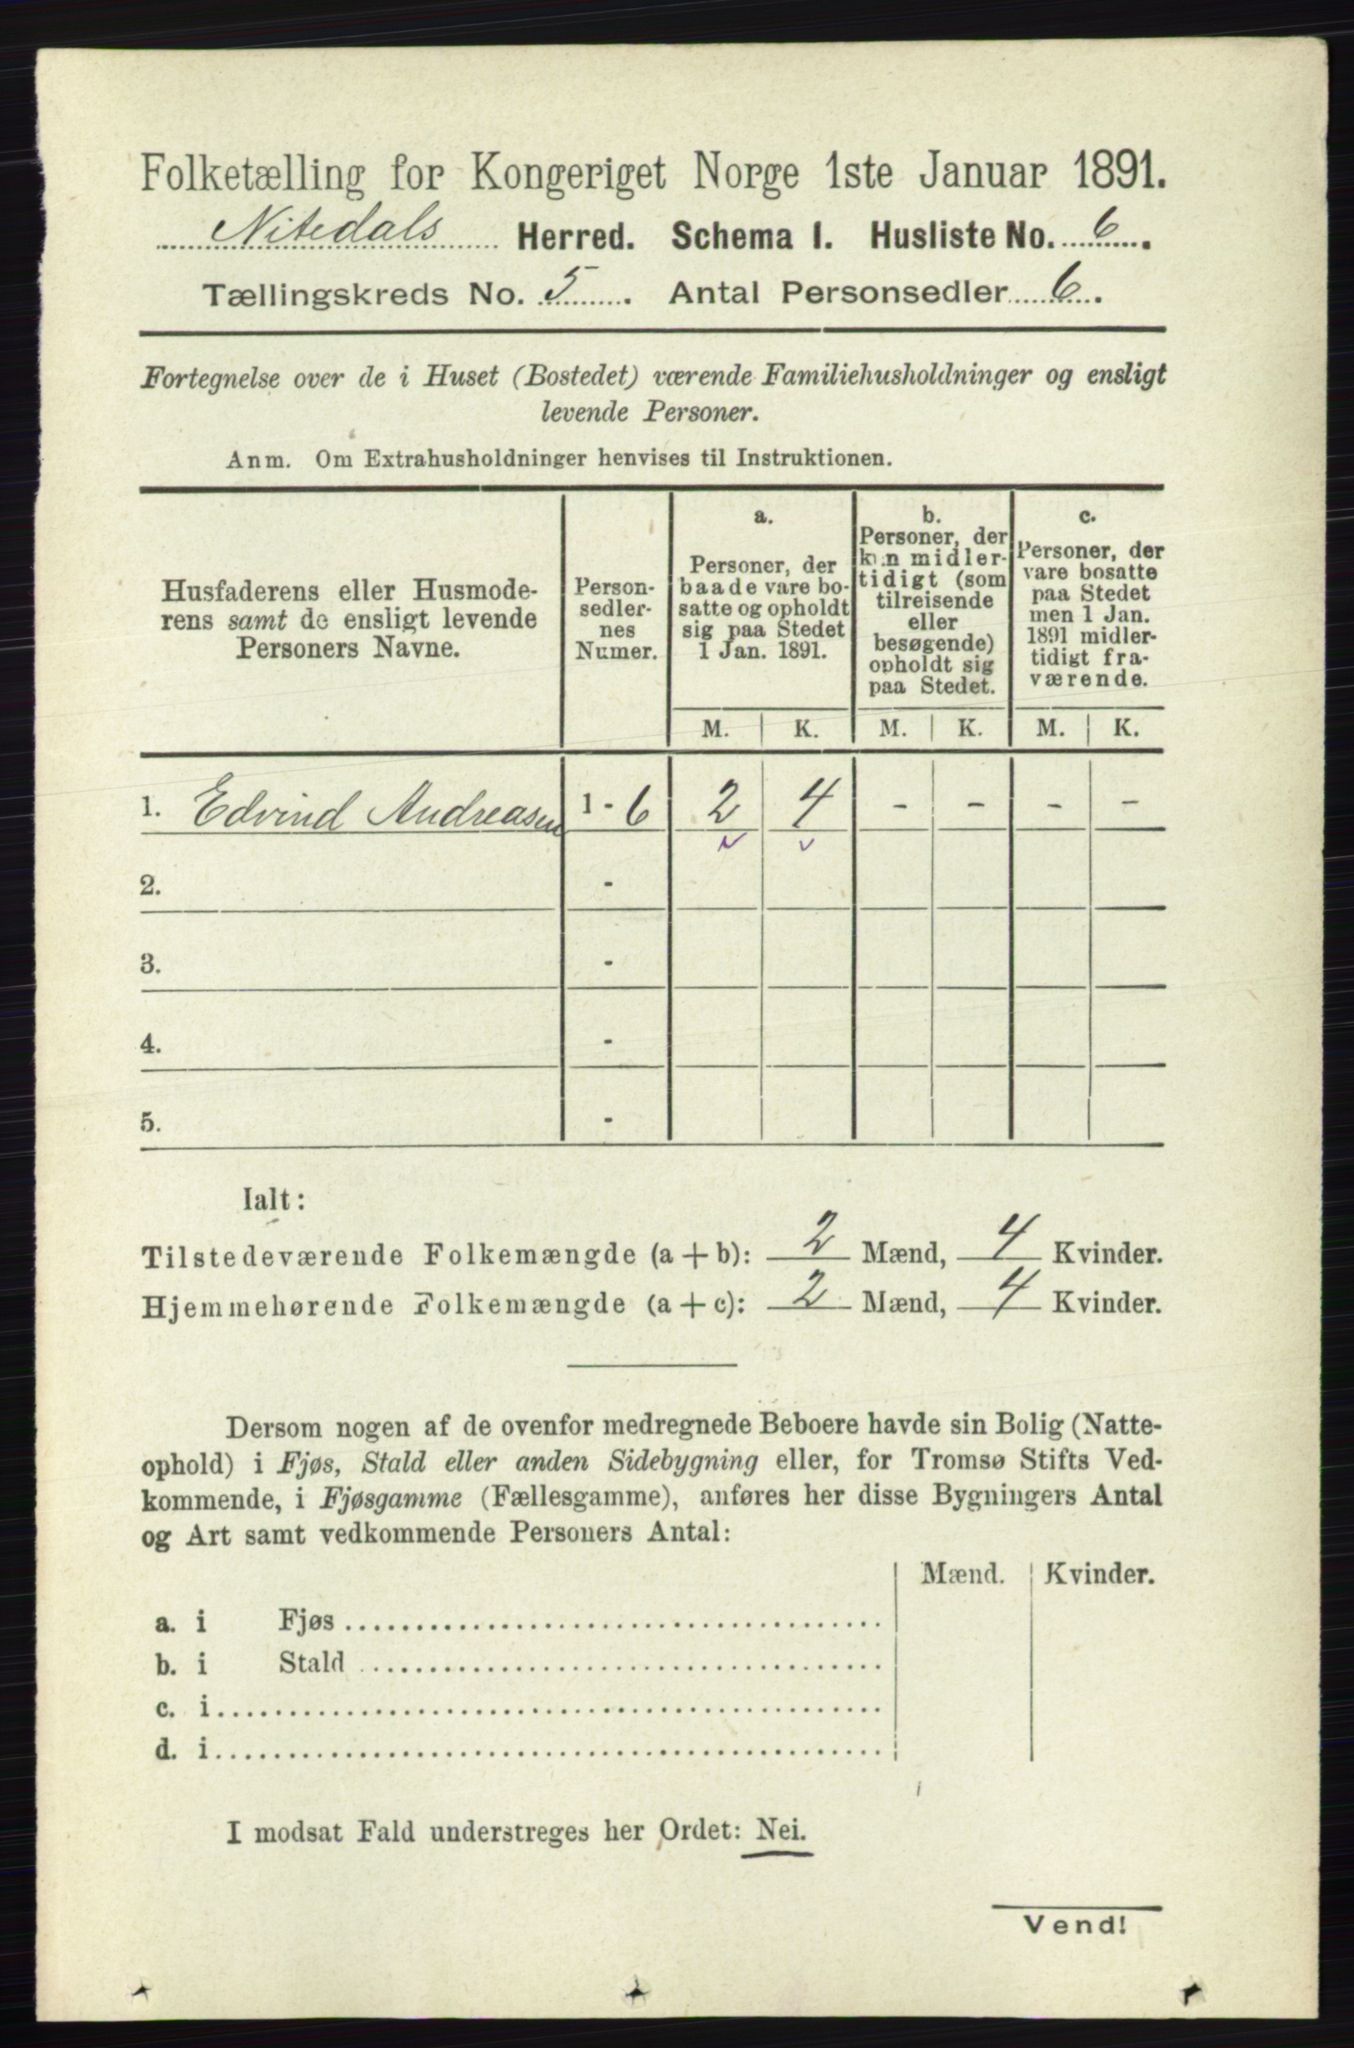 Folketælling for Kongeriget Norge 1ste Januar 1891.
Nitedals Herred. Schema I. Husliste No. 6.
Tællingskreds No. 5. Antal Personsedler 6.
Fortegnelse over de i Huset (Bostedet) værende Familiehusholdninger og ensligt
levende Personer.
Anm. Om Extrahusholdninger henvises til Instruktionen.
Husfaderens eller Husmode-
rens samt de ensligt levende
Personers Navne.
Person-
sedler-
nes
Numer.
a.
Personer, der
baade vare bo-
satte og opholdt
sig paa Stedet
1 Jan. 1891.
b.
Personer, der
kun midler-
tidigt (som
tilreisende
eller
besøgende)
opholdt sig
paa Stedet.
c.
Personer, der
vare bosatte
paa Stedet
men 1 Jan.
1891 midler-
tidigt fra-
værende.
M. K. M. K. M. K.
1. Edvind Andreasen 1 - 6 2 4 - - - -
2. -
3. -
4. -
5. -
Ialt:
Tilstedeværende Folkemængde (a + b): 2 Mænd, 4 Kvinder.
Hjemmehørende Folkemængde (a + c): 2 Mænd, 4 Kvinder.
Dersom nogen af de ovenfor medregnede Beboere havde sin Bolig (Natte-
ophold) i Fjøs, Stald eller anden Sidebygning eller, for Tromsø Stifts Ved-
kommende, i Fjøsgamme (Fællesgamme), anføres her disse Bygningers Antal
og Art samt vedkommende Personers Antal:
Mænd. Kvinder.
a. i Fjøs
b. i Stald
c. i
d. i
I modsat Fald understreges her Ordet: Nei.
Vend!